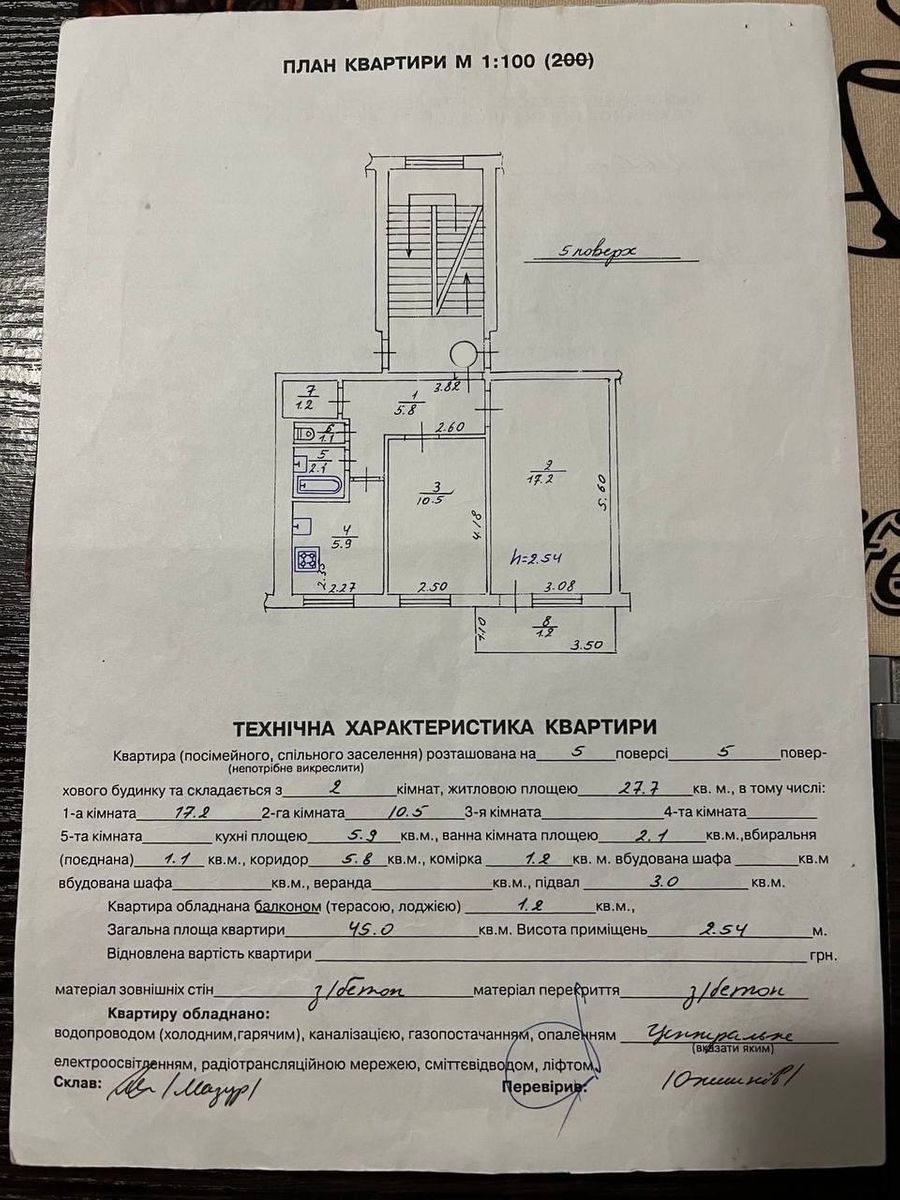 ПЛАН КВАРТИРИ М 1:100 (200)
5 поверх
7
1.2
3.82
1
5.8
6
1.1
2.60
5
2.1
2
17.2
3
10.5
5.60
4.18
4
5.9
h=2.54
2.27
2.50
3.08
1.10
8
1.2
3.50
ТЕХНІЧНА ХАРАКТЕРИСТИКА КВАРТИРИ
Квартира (посімейного, спільного заселення) розташована на 5 поверсі 5 повер-
(непотрібне викреслити)
хового будинку та складається з 2 кімнат, житловою площею 27.7 кв. м., в тому числі:
1-а кімната 17.2 2-га кімната 10.5 3-я кімната 4-та кімната
5-та кімната кухні площею 5.9 кв.м., ванна кімната площею 2.1 кв.м.,вбиральня
(поєднана) 1.1 кв.м., коридор 5.8 кв.м., комірка 1.2 кв. м. вбудована шафа кв.м
вбудована шафа кв.м., веранда кв.м., підвал 3.0 кв.м.
Квартира обладнана балконом (терасою, лоджією) 1.2 кв.м.,
Загальна площа квартири 45.0 кв.м. Висота приміщень 2.54 м.
Відновлена вартість квартири грн.
матеріал зовнішніх стін з/бетон матеріал перекриття з/бетон
Квартиру обладнано:
водопроводом (холодним,гарячим), каналізацією, газопостачанням, опаленням центральне
(вказати яким)
електроосвітленням, радіотрансляційною мережею, сміттєвідводом, ліфтом.
Склав: /Мазур/ Перевірив: